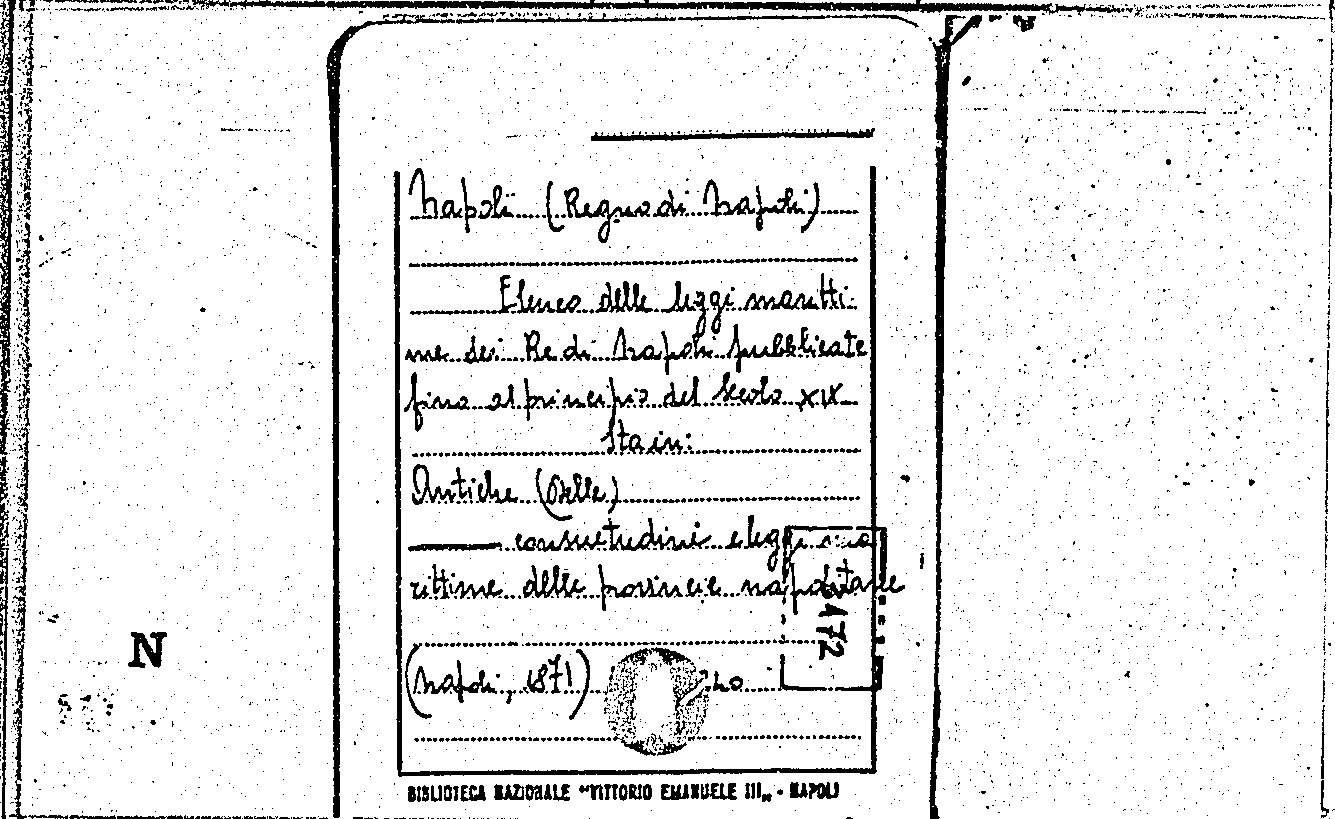 Napoli (Regno di Napoli)
Elenco delle leggi maritti-
me dei Re di Napoli pubblicate
fino al principio del secolo XIX
Sta in:
Antiche (Delle)
consuetudini e leggi ma
rittime delle provincie napoletane
N
472
(Napoli, 1871)
BIBLIOTECA NAZIONALE "VITTORIO EMANUELE III„ - NAPOLI